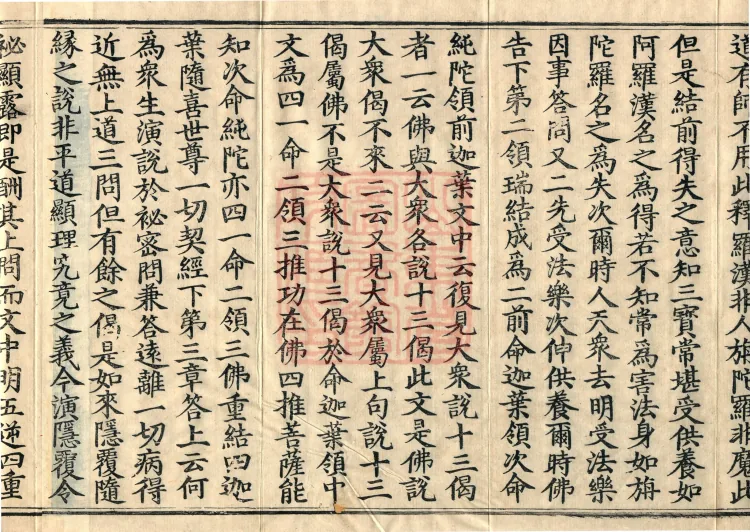 道有師不用此釋羅漢非人旃陀羅非魔此
但是結前得失之意知三寶常堪受供養如
阿羅漢名之爲得若不知常爲害法身如旃
陀羅名之爲失次爾時人天衆去明受法樂
因事答問又二先受法樂次伸供養爾時佛
告下第二領瑞結成爲二前命迦葉領次命
純陀領前迦葉文中云復見大衆說十三偈
者一云佛與大衆各說十三偈此文是佛說
大衆偈不來二云又見大衆屬上句說十三
偈屬佛不是大衆說十三偈於命迦葉領中
文爲四一命二領三推功在佛四推菩薩能
知次命純陀亦四一命二領三佛重結四迦
葉隨喜世尊一切契經下第三章答上云何
爲衆生演說於祕密問兼答遠離一切病得
近無上道三問但有餘之偈是如來隱覆隨
緣之說非平道顯理究竟之義今演隱覆令
祕顯露即是酬其上問而文中明五逆四重